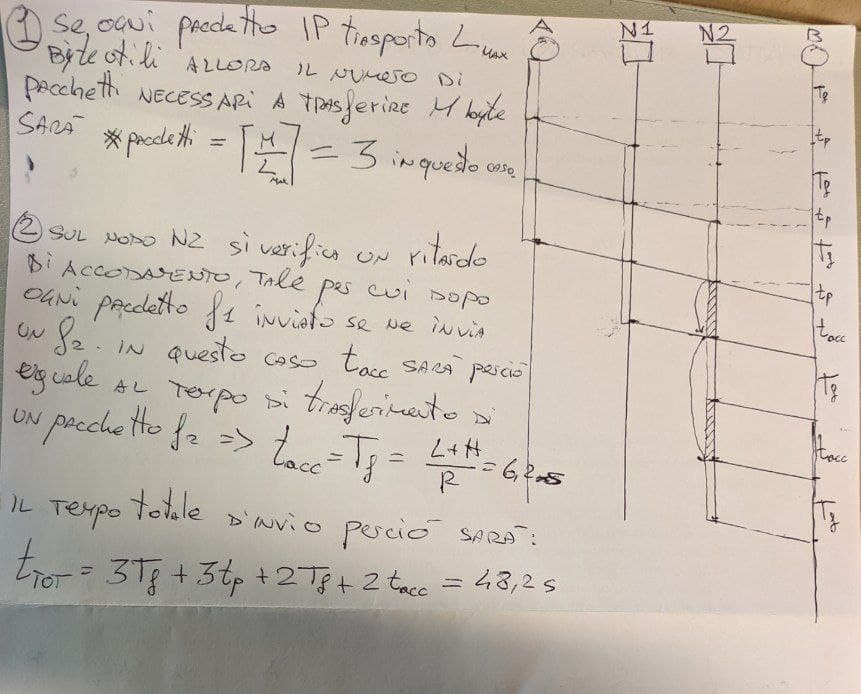 ① Se ogni pacchetto IP trasporta L MAX
Byte utili ALLORA IL NUMERO DI
pacchetti NECESSARI A TRASFERIRE M byte
SARÀ #pacchetti = ⌈M/L MAX⌉ = 3 in questo caso
② SUL NODO N2 si verifica UN ritardo
DI ACCODAMENTO, TALE per cui DOPO
OGNI pacchetto f1 inviato se ne INVIA
UN f2. IN questo caso tacc SARÀ perciò
uguale AL Tempo DI trasferimento DI
UN pacchetto f2 => tacc = Tf = L+H/R = 6,2 s
IL Tempo totale D'INVIO perciò SARÀ:
tTOT = 3Tf + 3tp + 2Tf + 2tacc = 48,2 s
A N1 N2 B
Tf
tp
Tf
tp
Tf
tp
tacc
Tf
tacc
Tf